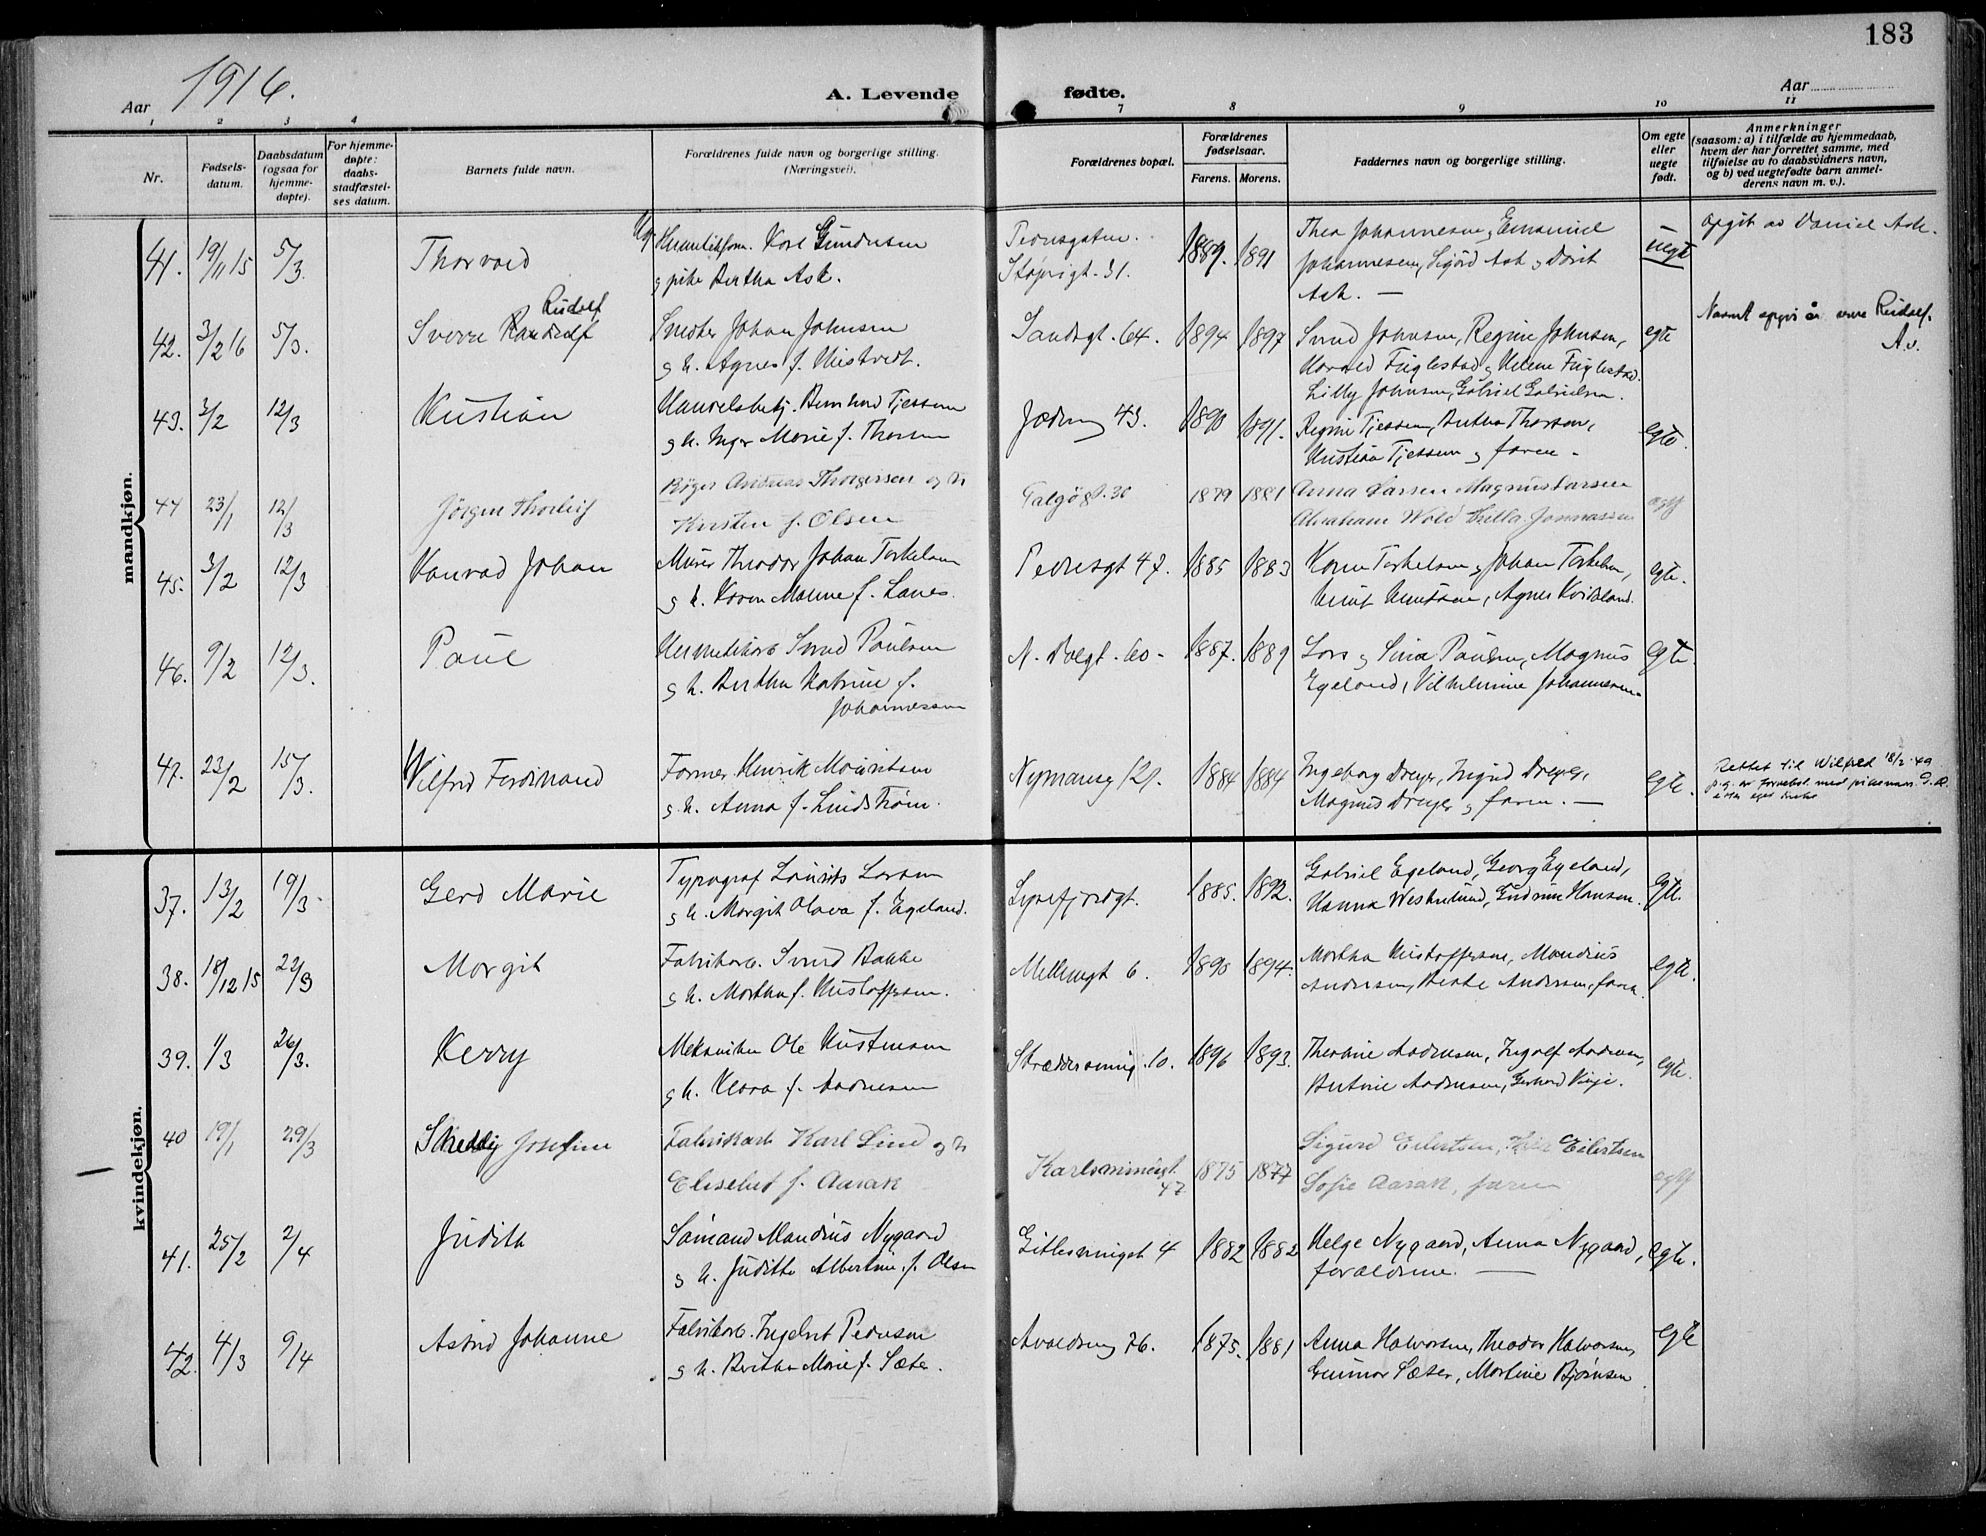 183
Aar 1916.
A. Levende fødte.
Aar
1 2 3 4 7 8 9 10 11
Nr.
Fødsels-
datum.
Daabsdatum
(ogsaa for
hjemme-
døpte).
For hjemme-
døpte:
daabs-
stadfæstel-
ses datum.
Barnets fulde navn.
Forældrenes fulde navn og borgerlige stilling.
(Næringsvei).
Forældrenes bopæl.
Forældrenes
fødselsaar.
Farens. Morens.
Faddernes navn og borgerlige stilling.
Om egte
eller
uegte
født.
Anmerkninger
(saasom: a) i tilfælde av hjemmedaab,
hvem der har forrettet samme, med
tilføielse av to daabsvidners navn,
og b) ved uegtefødte barn anmel-
derens navn m. v.).
mandkjøn.
41. 19/11 15 5/3. Thorvald
Karl Gundersen
g pike Bertha Ask.
Pedersgaten.
31.
1889. 1891
Thea Johannesen, Emanuel
Johannesen, Sigurd Ask g Dorit
Ask. —
uegte
opgit av Daniel Ask.
42. 3/2 16 5/3. Sverre Rudolf
Smeder Johan Johnsen
g h. Agnes f.
Sandsgt. 64. 1894 1897
Svend Johnsen, Regine Johnsen,
Harald Fuglestad g Helene Fuglestad.
egte
Navnet være Rudolf.
A.v.
43. 3/2 12/3 Kristian
Bernhard Tjessem
g h. Inger Marie f. Thorsen
Jæderveg 43. 1890 1891.
Lilly Johnsen, Gabriel Gabrielsen.
Regine Tjessem, Bertha Thorsen,
Kristian Tjessem g faren -
egte.
44 23/1 12/3 Jörgen Thorleif
Andreas Thorgersen og h
Kirsten f. Olsen
30 1879 1881
Anna Larsen Magnus Larsen
Abraham Wold Hilla Jonnassen
egte
45. 3/2 12/3 Konrad Johan
Murer Theodor Johan Torkelsen
g h. Karen Malene f. Lanes.
Pedersgt 47. 1885 1883
Karen Torkelsen g Johan Torkelsen,
Knut Knutsen, Agnes Kvidsland.
egte.
46. 9/2 12/3. Paul
Svend Paulsen
g h. Bertha Katrine f.
Johannessen
60 - 1887. 1889
Lars g Sina Paulsen, Magnus
Egeland, Vilhelmine Johannesen.
egte.
47. 23/2 15/3. Wilfrid Ferdinand
Former Henrik Mauritsen
g h. Anna f. Lindstrøm.
1884 1884
Ingeborg Dreyer, Ingrid Dreyer,
Magnus Dreyer g faren. —
egte.
Rettet til Wilfred 18/2-49
kvindekjøn.
37. 13/2 19/3 Gerd Marie
Typograf Laurits Larsen
g h. Margit Olava f. Egeland.
Lysefjordgt. 1885. 1892.
Gabriel Egeland, Georg Egeland,
Hanna Westerlund, Gudrun Hansen.
egte.
38. 18/12 15 22/3 Margit
Fabrikarb. Svend Bakke
g h. Martha f. Kristoffersen.
Møllegt 6. 1890 1894.
Martha Kristoffersen, Mandius
Andersen, Berte Andersen, faren.
egte.
39. 1/3 26/3. Kerry
Mekaniker Ole Kristensen
g h. Klara f. Andresen
10. 1896 1893.
Theodine Andresen, Ingolf Andresen,
Bertine Andresen, Gerhard Vinje.
egte.
40 19/1 29/3 Josefine
Fabrikarb Karl Lind og h
Elisabet f. Aarak
47 1875 1877
Sigurd Eilertsen, Eilertsen
Sofie Aarak, faren
egte
41. 25/2 2/4 Judith
Sømand Mandius Nygaard
g h. Juditte Albertine f. Olsen
4 1882 1882
Helge Nygaard, Anna Nygaard,
forældrene. —
egte.
42. 4/3 9/4 Astrid Johanne
Fabrikarb. Ingebret Pedersen
g h. Bertha Marie f. Sæter.
Avaldsneg 76. 1875. 1881
Anna Halvorsen, Theodor Halvorsen,
Gunnar Sæter, Martine Bjørnsen
egte